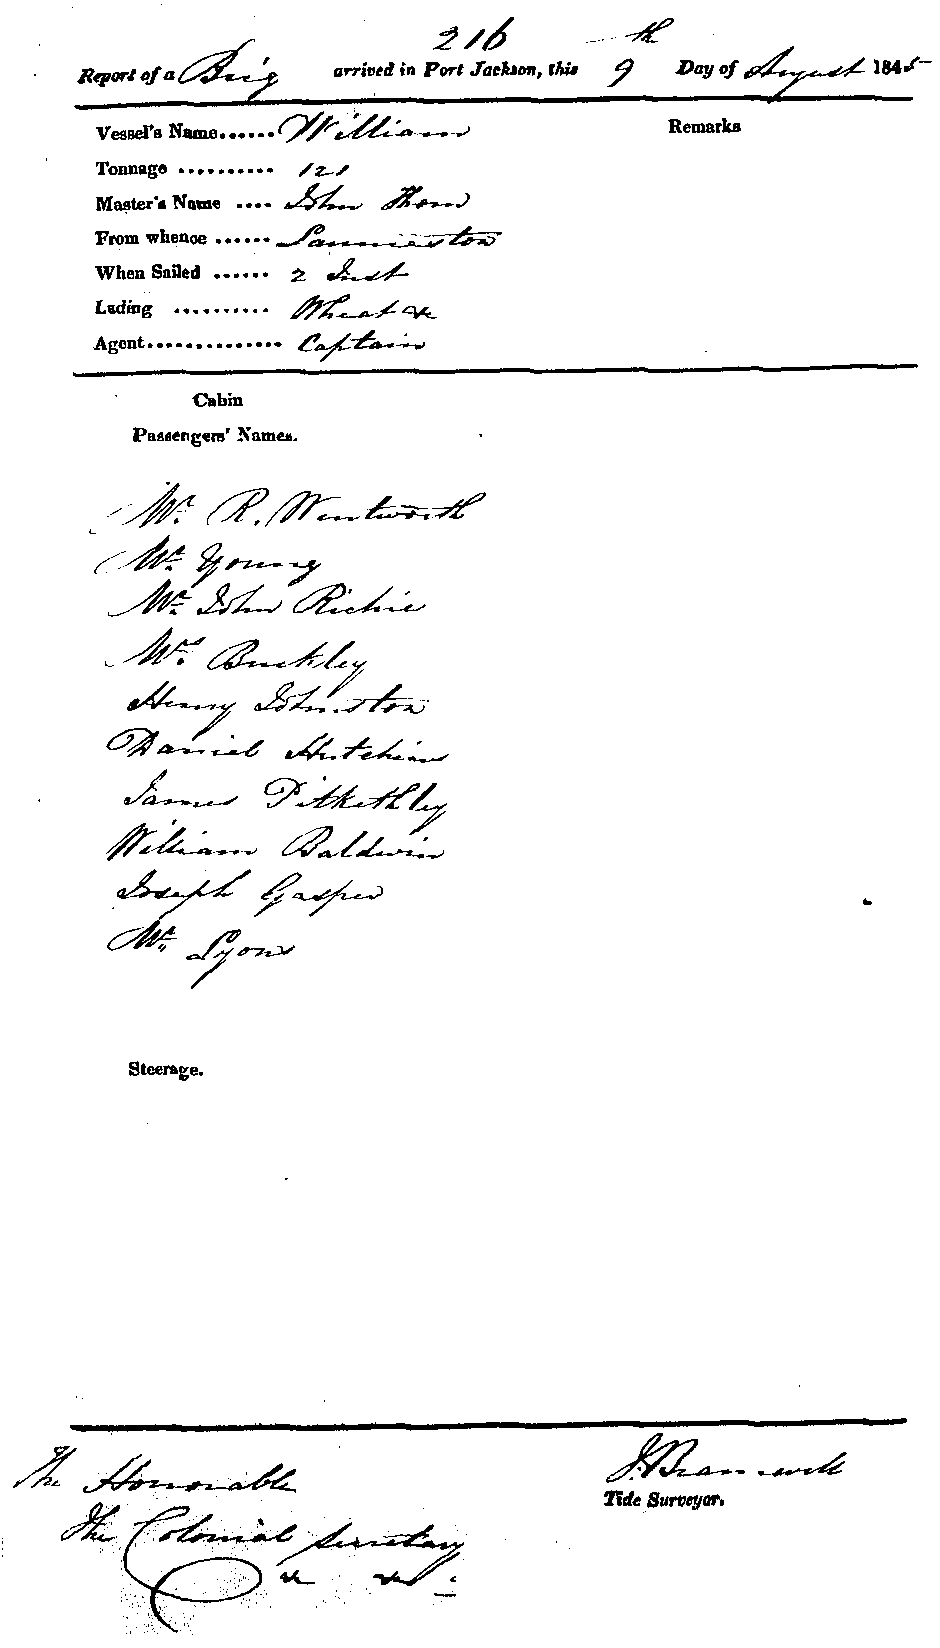 216
Report of a Brig arrived in Port Jackson, this 9th Day of August 1845
Vessel's Name...... William Remarks
Tonnage .......... 121
Master's Name .... John Thom
From whence ...... Launceston
When Sailed ...... 2 Inst
Lading .......... Wheat &c
Agent.............. Captain
Cabin
Passengers' Names.
Mr. R. Wentworth
Mr. Young
Mr. John Richie
Mrs. Buckley
Henry Johnston
Daniel Hutchins
James Pitkethley
William Baldwin
Joseph Gasper
Mr. Lyons
Steerage.
The Honorable
The Colonial Secretary
&c &c
J. Bramwell
Tide Surveyor.